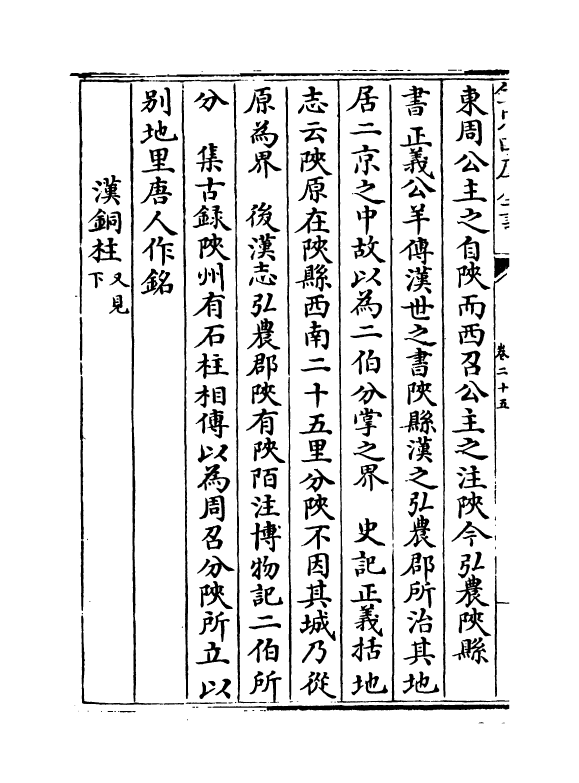 東周公主之自陝而西召公主之注陝今弘農陝縣
書正義公羊傳漢世之書陝縣漢之弘農郡所治其地
居二京之中故以為二伯分掌之界　史記正義括地
志云陝原在陝縣西南二十五里分陝不因其城乃從
原為界　後漢志弘農郡陝有陝陌注博物記二伯所
分　集古録陝州有石柱相傳以為周召分陝所立以
別地里唐人作銘
漢銅柱又見下
卷二十五